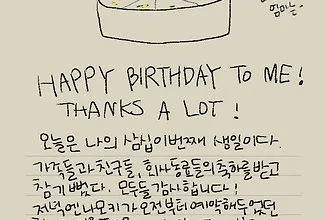 엄마는
HAPPY BIRTHDAY TO ME!
THANKS A LOT!
오늘은 나의 삼십이번째 생일이다.
가족들과 친구들, 회사동료들의 축하를 받고
참 기뻤다. 모두들 감사합니다!
저녁엔 나오키가 오전부터 예약해두었던